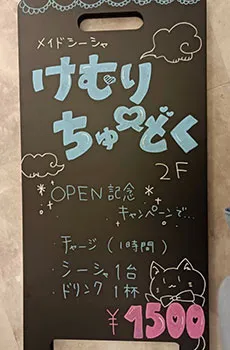 メイドシーシャ
けむり
ちゅーどく
2F
OPEN記念
キャンペーンで...
・チャージ(1時間)
・シーシャ1台
・ドリンク1杯
¥1500